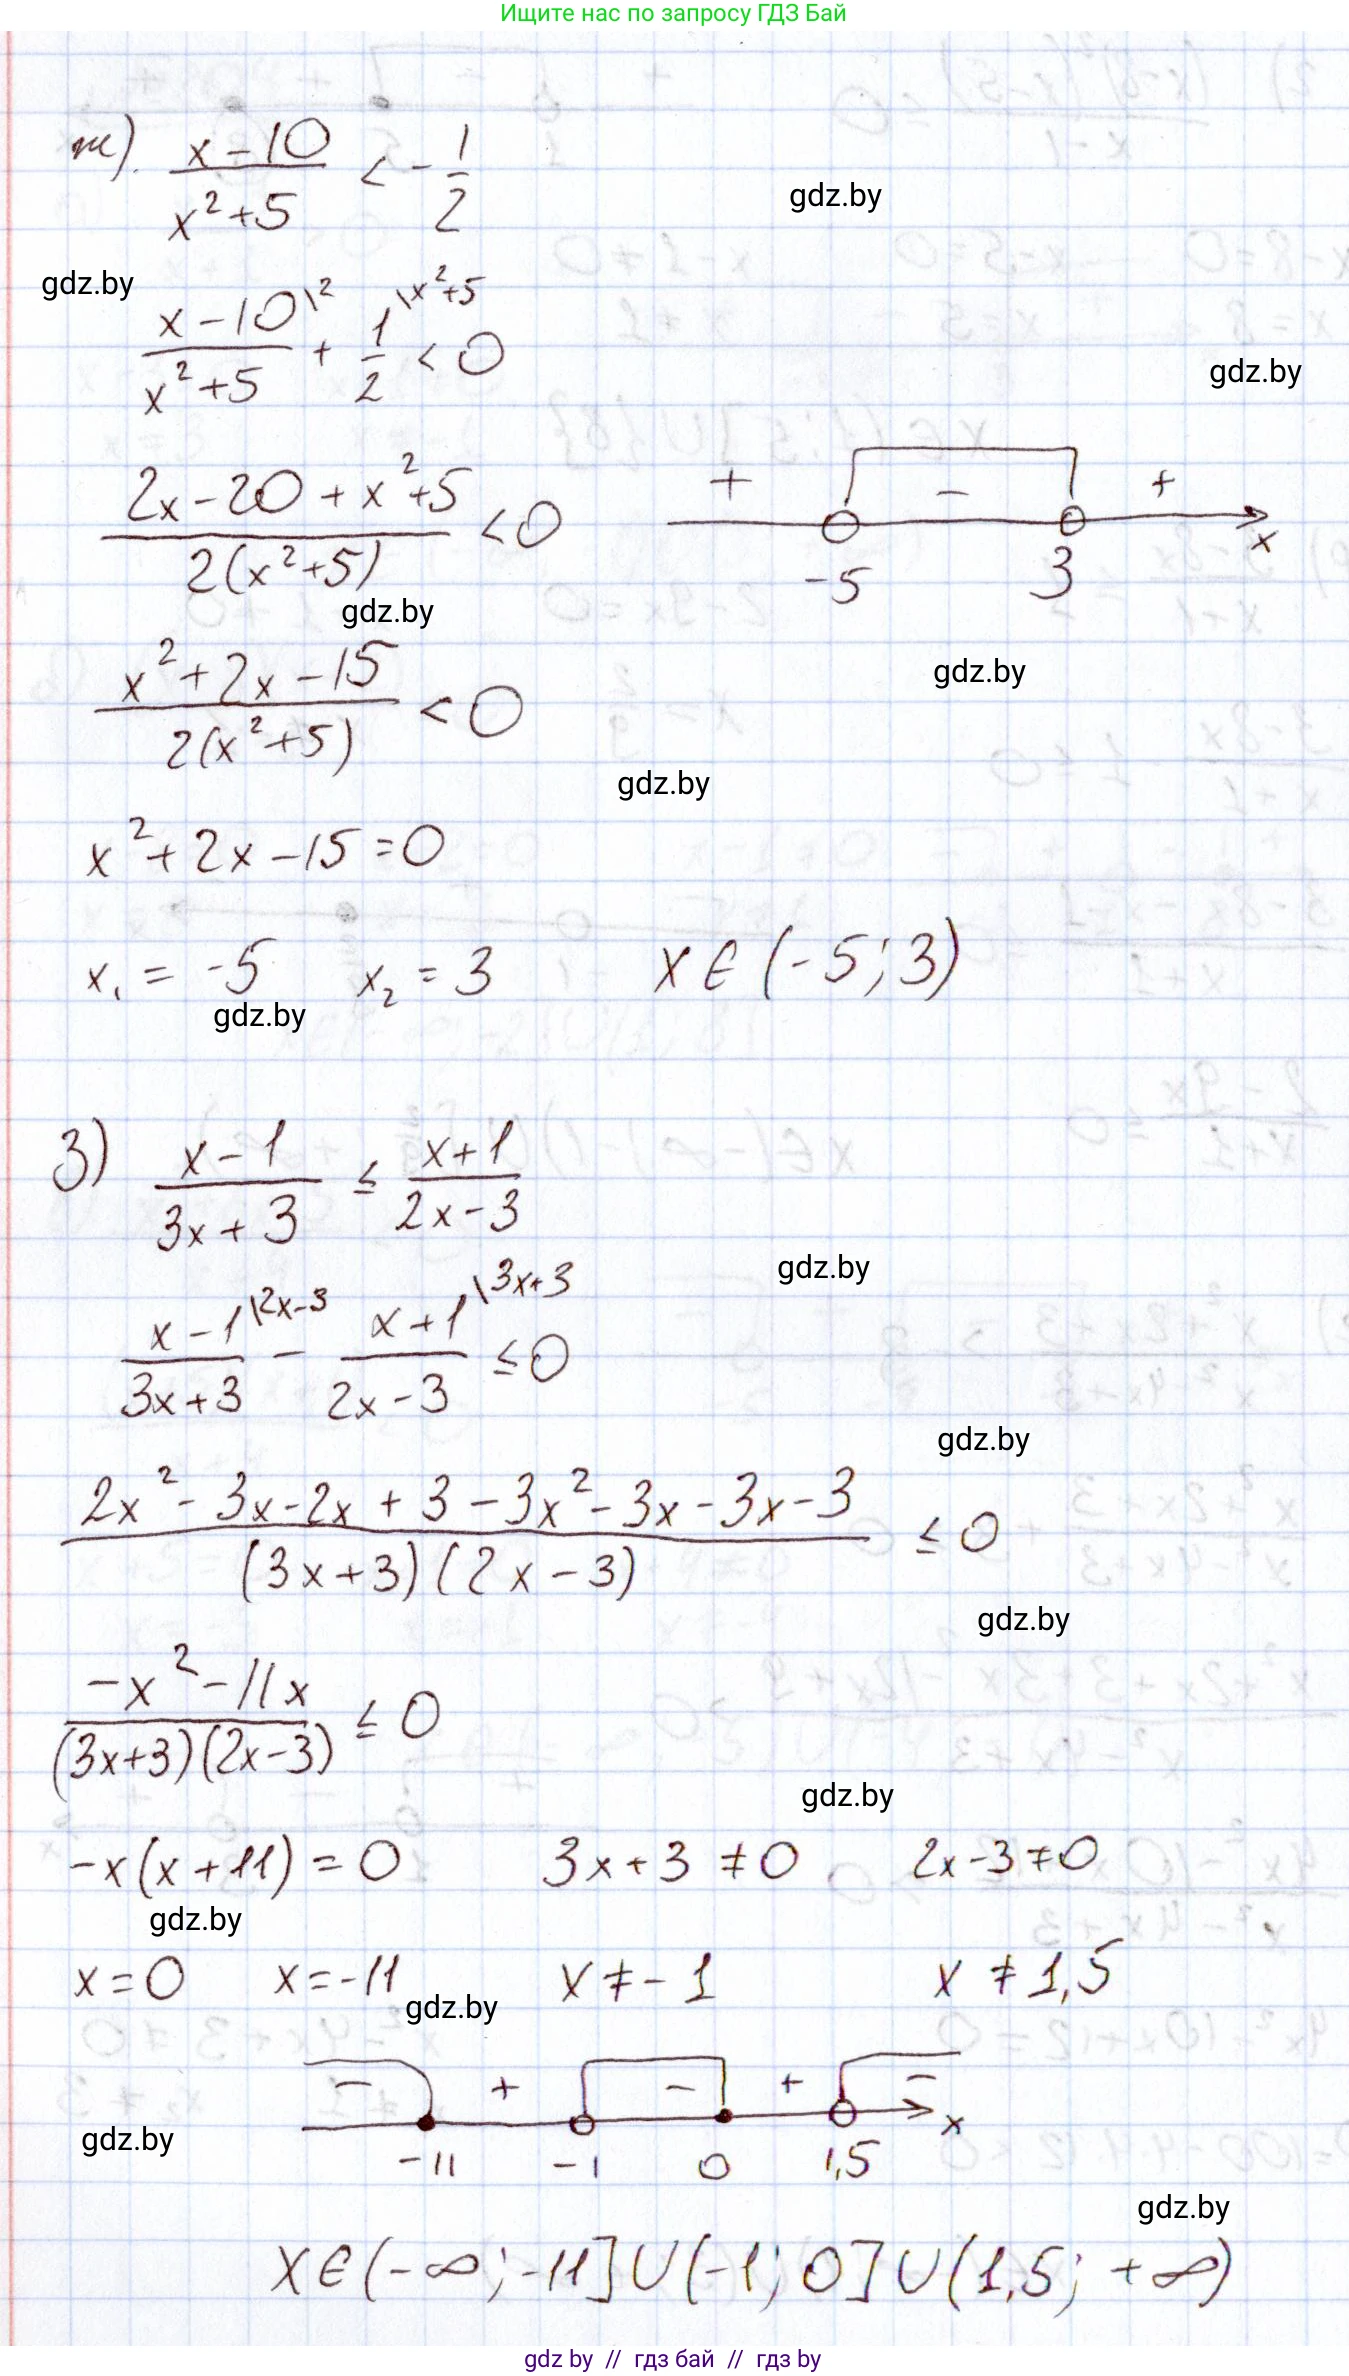 Ищите нас по запросу ГДЗ Бай
ж). (x-10)/(x²+5) < -1/2
gdz.by
gdz.by
(x-10)/(x²+5) \2 + 1/2 \x²+5 < 0
gdz.by
(2x-20+x²+5)/(2(x²+5)) < 0
+ - + x
-5 3
gdz.by
(x²+2x-15)/(2(x²+5)) < 0
gdz.by
gdz.by
x²+2x-15=0
x₁ = -5 x₂ = 3 x∈(-5;3)
gdz.by
з) (x-1)/(3x+3) ≤ (x+1)/(2x-3)
gdz.by
(x-1)/(3x+3) \2x-3 - (x+1)/(2x-3) \3x+3 ≤ 0
gdz.by
(2x²-3x-2x+3-3x²-3x-3x-3)/((3x+3)(2x-3)) ≤ 0
gdz.by
(-x²-11x)/((3x+3)(2x-3)) ≤ 0
gdz.by
-x(x+11)=0 3x+3≠0 2x-3≠0
gdz.by
x=0 x=-11 x≠-1 x≠1,5
gdz.by
- + - + - x
-11 -1 0 1,5
gdz.by
gdz.by
x∈(-∞;-11]∪(-1;0]∪(1,5;+∞)
gdz.by // гдз бай // гдз by